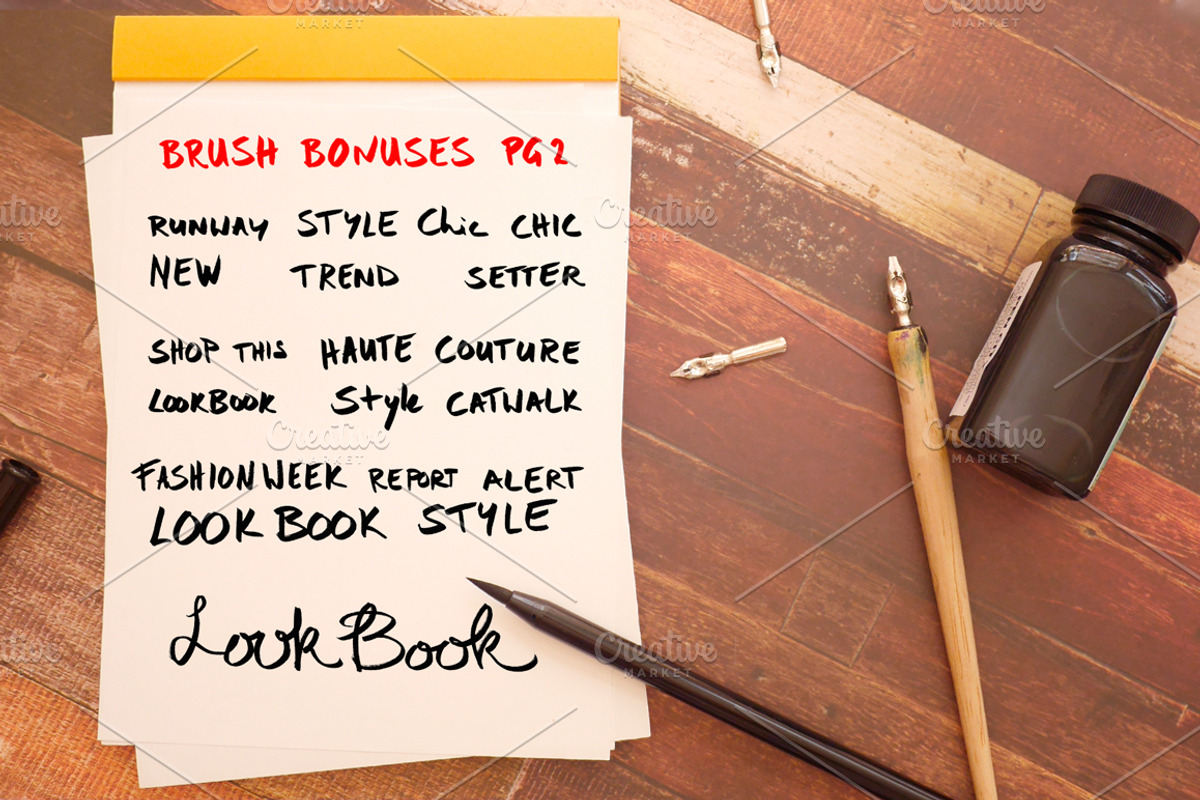 BRUSH BONUSES PG 2
RUNWAY STYLE Chic CHIC
NEW TREND SETTER
SHOP THIS HAUTE COUTURE
LOOKBOOK Style CATWALK
FASHION WEEK REPORT ALERT
LOOK BOOK STYLE
Look Book
Creative
MARKET
Creative
MARKET
Creative
MARKET
Creative
MARKET
Creative
MARKET
Creative
MARKET
Creative
MARKET
Creative
MARKET